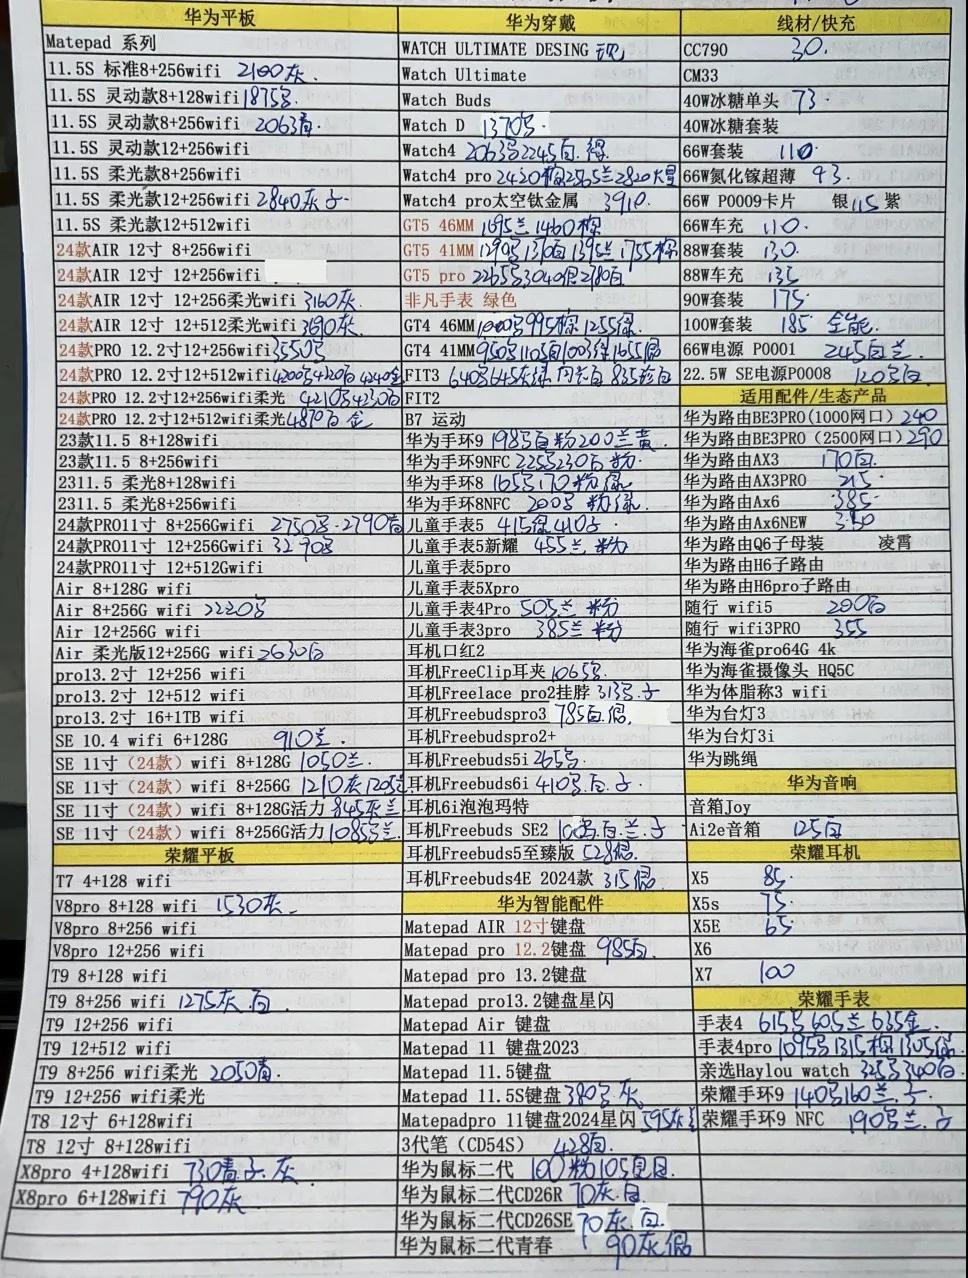 华为平板
Matepad 系列
11.5S 标准8+256wifi 2100灰.
11.5S 灵动款8+128wifi 1875
11.5S 灵动款8+256wifi 2063青.
11.5S 灵动款12+256wifi
11.5S 柔光款8+256wifi
11.5S 柔光款12+256wifi 2840灰子
11.5S 柔光款12+512wifi
24款AIR 12寸 8+256wifi
24款AIR 12寸 12+256wifi
24款AIR 12寸 12+256柔光wifi 3160灰
24款AIR 12寸 12+512柔光wifi 3690灰
24款PRO 12.2寸12+256wifi 3550
24款PRO 12.2寸12+512wifi
24款PRO 12.2寸12+256柔光
24款PRO 12.2寸12+512柔光 4870白 金
23款11.5 8+128wifi
23款11.5 8+256wifi
2311.5 柔光8+128wifi
2311.5 柔光8+256wifi
24款PRO11寸 8+256Gwifi 2750 2790
24款PRO11寸 12+256Gwifi 3290
24款PRO11寸 12+512Gwifi
Air 8+128G wifi
Air 8+256G wifi 2220
Air 12+256G wifi
Air 柔光版12+256G wifi 2630白
pro13.2寸 12+256 wifi
pro13.2寸 12+512 wifi
pro13.2寸 16+1TB wifi
SE 10.4 wifi 6+128G 910兰.
SE 11寸(24款) wifi 8+128G 1050兰.
SE 11寸(24款) wifi 8+256G 1210灰
SE 11寸(24款) wifi 8+128G活力 845灰兰
SE 11寸(24款) wifi 8+256G活力 1085兰
荣耀平板
T7 4+128 wifi
V8pro 8+128 wifi 1530灰
V8pro 8+256 wifi
V8pro 12+256 wifi
T9 8+128 wifi
T9 8+256 wifi 1275灰.白
T9 12+256 wifi
T9 12+512 wifi
T9 8+256 wifi柔光 2050青.
T9 12+256 wifi柔光
T8 12寸 6+128wifi
T8 12寸 8+128wifi
X8pro 4+128wifi 730青子.灰
X8pro 6+128wifi 790灰
华为穿戴
WATCH ULTIMATE DESING
Watch Ultimate
Watch Buds
Watch D 1370
Watch4 2063 2245白.
Watch4 pro 2420棕2565兰2820
Watch4 pro太空钛金属 3910.
GT5 46MM 1695兰1460棕
GT5 41MM 1290 1370白1395兰1755棕
GT5 pro 2265 3040 2780白
非凡手表 绿色
GT4 46MM 995棕 1255绿
GT4 41MM 950 1105白 1655
FIT3 640 645灰绿
FIT2
B7 运动
华为手环9 198 白粉200兰黄
华为手环9NFC 225 230白 粉.
华为手环8 165 170粉绿
华为手环8NFC 200 粉绿.
儿童手表5 415绿410子
儿童手表5新耀 455兰.粉
儿童手表5pro
儿童手表5Xpro
儿童手表4Pro 505兰 粉
儿童手表3pro 385兰 粉
耳机口红2
耳机FreeClip耳夹 1065
耳机Freelace pro2挂脖 313 .子
耳机Freebudspro3 785白.
耳机Freebudspro2+
耳机Freebuds5i 265
耳机Freebuds6i 410 .白.子
耳机6i泡泡玛特
耳机Freebuds SE2 .白.兰.子
耳机Freebuds5至臻版 528
耳机Freebuds4E 2024款 315
华为智能配件
Matepad AIR 12寸键盘
Matepad pro 12.2键盘 985白.
Matepad pro 13.2键盘
Matepad pro13.2键盘星闪
Matepad Air 键盘
Matepad 11 键盘2023
Matepad 11.5键盘
Matepad 11.5S键盘 380 .灰.
Matepadpro 11键盘2024星闪 595灰
3代笔(CD54S) 428白.
华为鼠标二代 100粉105
华为鼠标二代CD26R 70灰.白
华为鼠标二代CD26SE 70灰.白
华为鼠标二代青春 90灰
线材/快充
CC790 30.
CM33
40W冰糖单头 73.
40W冰糖套装
66W套装 110
66W氮化镓超薄 93.
66W P0009卡片 银115紫
66W车充 110.
88W套装 130.
88W车充 135
90W套装 175
100W套装 185 全能.
66W电源 P0001 245白兰
22.5W SE电源P0008 120白
适用配件/生态产品
华为路由BE3PRO(1000网口) 240
华为路由BE3PRO(2500网口) 290
华为路由AX3 170白.
华为路由AX3PRO 215
华为路由Ax6 385
华为路由Ax6NEW
华为路由Q6子母装 凌霄
华为路由H6子路由
华为路由H6pro子路由
随行 wifi5 200白
随行 wifi3PRO 355
华为海雀pro64G 4k
华为海雀摄像头 HQ5C
华为体脂称3 wifi
华为台灯3
华为台灯3i
华为跳绳
华为音响
音箱Joy
Ai2e音箱 125白
荣耀耳机
X5 85.
X5s 75.
X5E 65
X6
X7 100
荣耀手表
手表4 615 605兰 635金.
手表4pro 1095 1315棕 1305
亲选Haylou watch 325 340白
荣耀手环9 140 160兰.子
荣耀手环9 NFC 190 兰.子